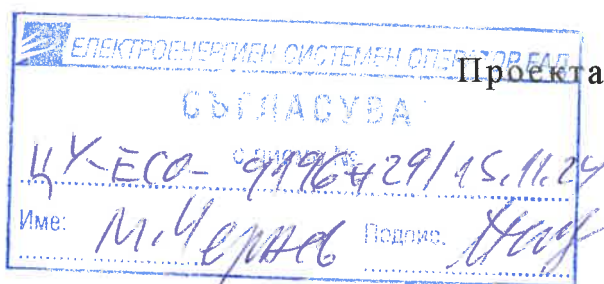 ЕЛЕКТРОЕНЕРГИЕН СИСТЕМЕН ОПЕРАТОР ЕАД
Проекта
СЪГЛАСУВА
с писмо №
ЦУ-ЕСО- 9196#29/15.11.24
Име: М. Чернев Подпис: